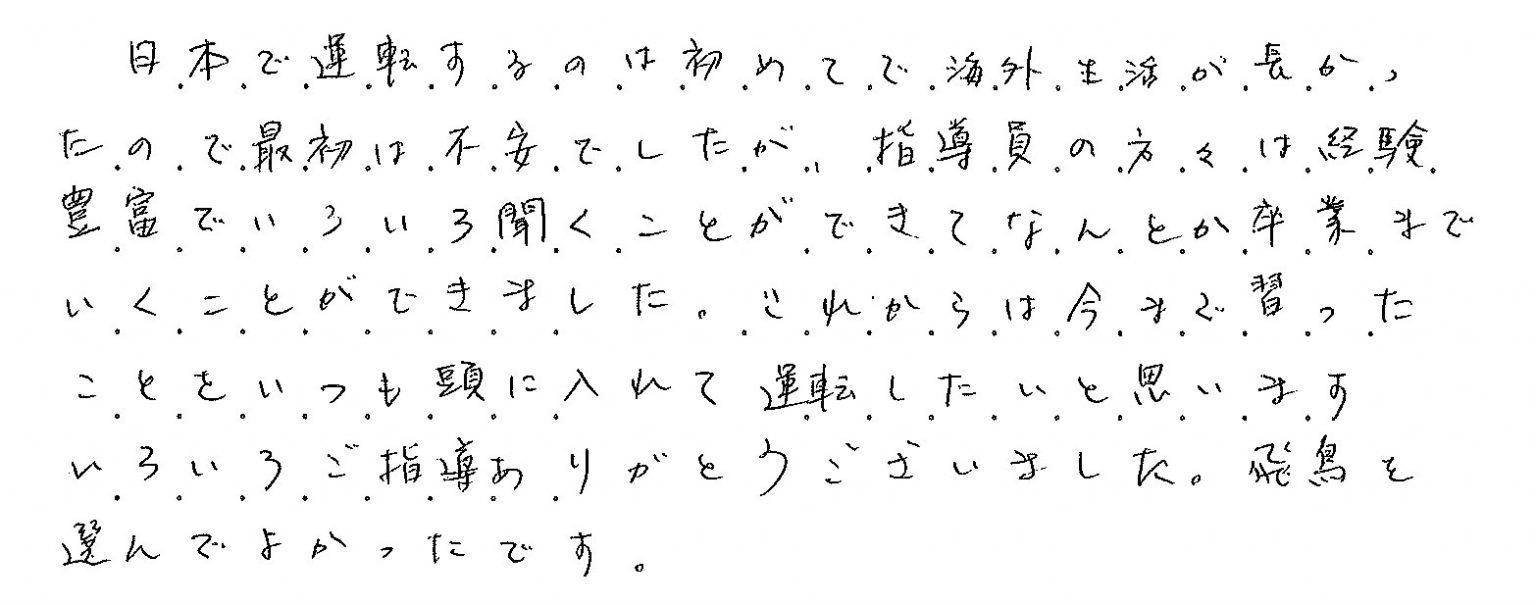 日本で運転するのは初めてで海外生活が長かっ
たので最初は不安でしたが、指導員の方々は経験
豊富でいろいろ聞くことができてなんとか卒業まで
いくことができました。これからは今まで習った
ことをいつも頭に入れて運転したいと思います
いろいろご指導ありがとうございました。飛鳥を
選んでよかったです。